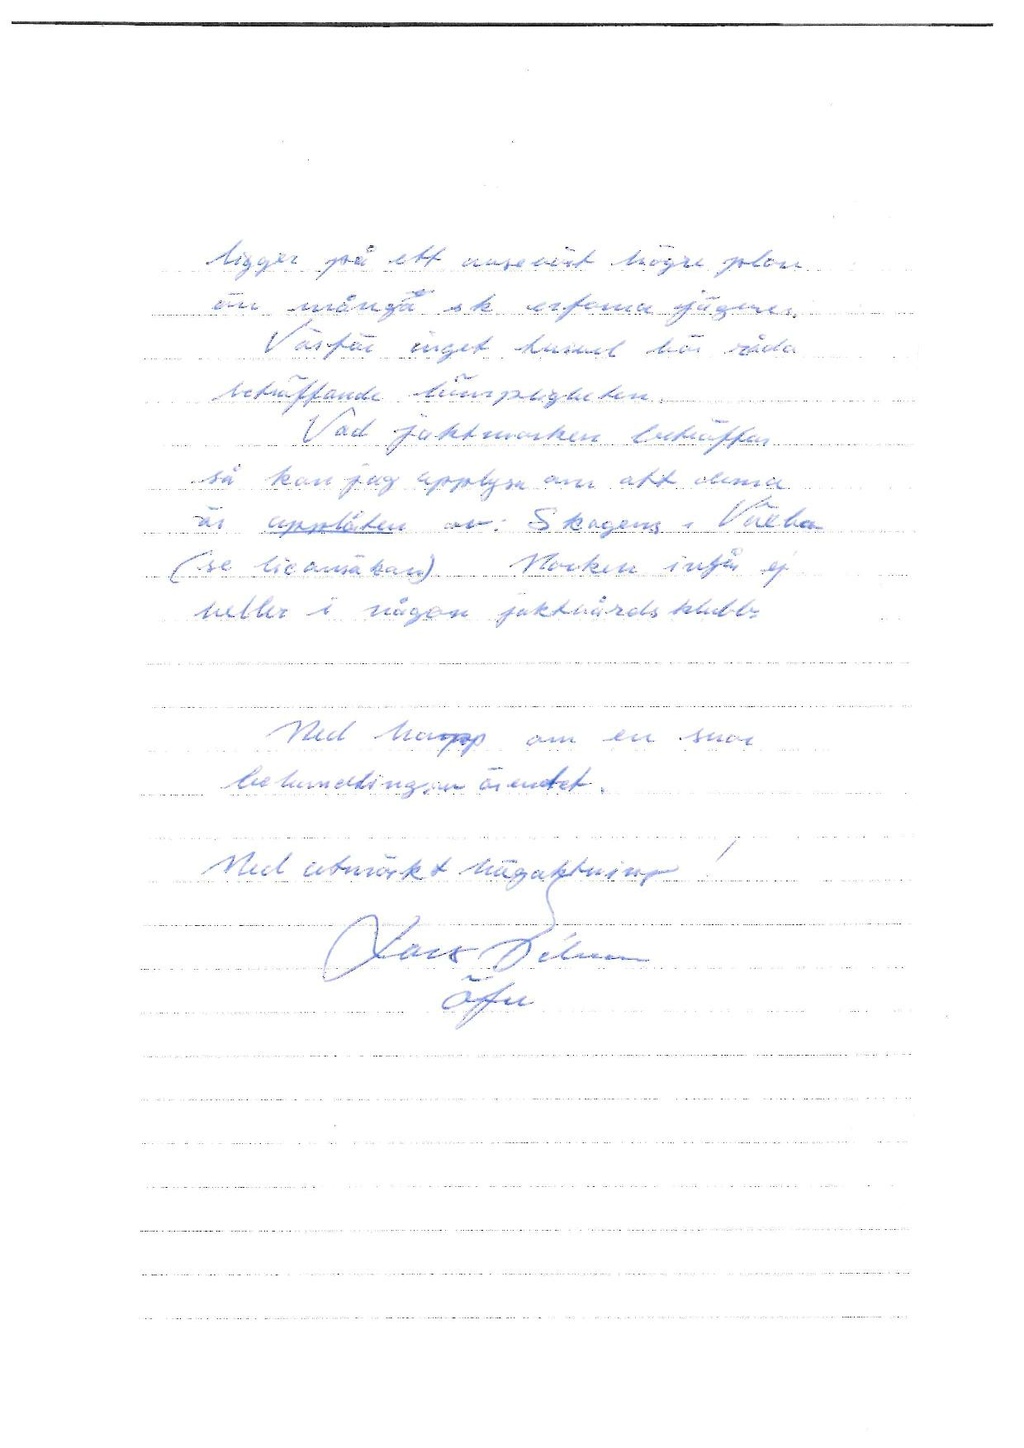 ligger på ett ansevärt högre plan
än många sk erfarna jägares.
Varför inget hinder bör råda
beträffande lämpligheten.
Vad jaktmarken beträffar
så kan jag upplysa om att denna
är upplåten av: Skogens i Våxbo
(se licansökan) Marken ingår ej
heller i någon jaktvårdsklubb
Med hopp om en snar
behandling av ärendet.
Med utmärkt högaktning!
Lars
Öfu